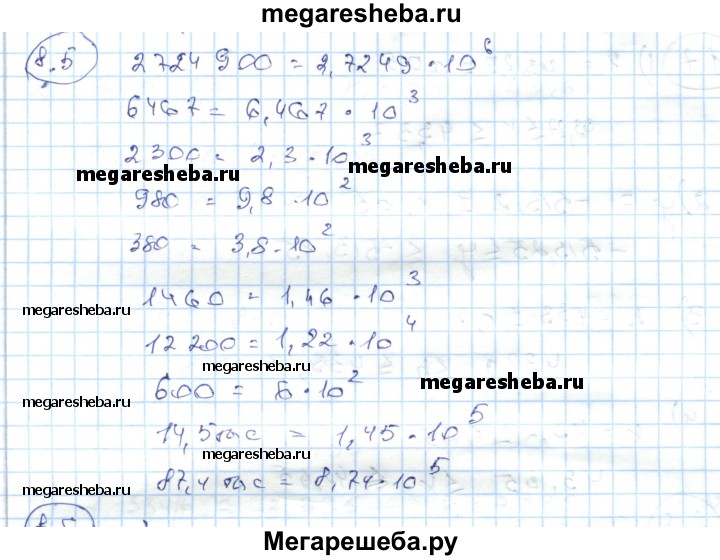 megaresheba.ru
8.5 2724900 = 2,7249 · 10^6
6467 = 6,467 · 10^3
2300 = 2,3 · 10^3
megaresheba.ru megaresheba.ru
980 = 9,8 · 10^2
380 = 3,8 · 10^2
1460 = 1,46 · 10^3
megaresheba.ru
12200 = 1,22 · 10^4
megaresheba.ru
600 = 6 · 10^2
megaresheba.ru megaresheba.ru
14,5 тыс = 1,45 · 10^5
megaresheba.ru
87,4 тыс = 8,74 · 10^5
megaresheba.ru
Мегарешеба.ру